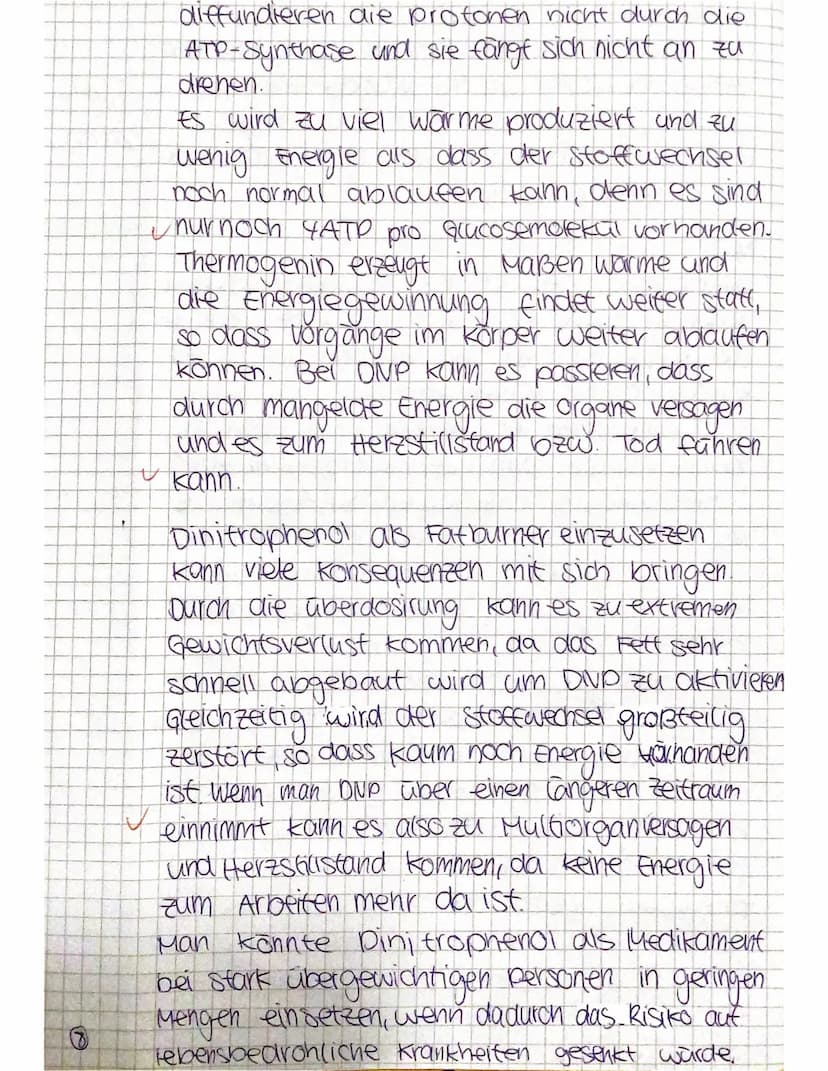 diffundieren die Protonen nicht durch die
ATP-Synthase und sie fängt sich nicht an zu
drehen.
Es wird zu viel Wärme produziert und zu
wenig Energie als dass der Stoffwechsel
noch normal ablaufen kann, denn es sind
nur noch 4ATP pro Glucosemolekül vorhanden.
Thermogenin erzeugt in Maßen Wärme und
die Energiegewinnung findet weiter statt,
so dass Vorgänge im Körper weiter ablaufen
können. Bei DNP kann es passieren, dass
durch mangelde Energie die Organe versagen
und es zum Herzstillstand bzw. Tod führen
kann.
Dinitrophenol als Fatburner einzusetzen
kann viele Konsequenzen mit sich bringen.
Durch die überdosirung kann es zu extremen
Gewichtsverlust kommen, da das Fett sehr
schnell abgebaut wird um DNP zu aktivieren
Gleichzeitig wird der Stoffwechsel großteilig
zerstört, so dass kaum noch Energie vorhanden
ist. Wenn man DNP über einen längeren Zeitraum
einnimmt kann es also zu Multiorganversagen
und Herzstillstand kommen, da keine Energie
zum Arbeiten mehr da ist.
Man könnte Dinitrophenol als Medikament
bei stark übergewichtigen Personen in geringen
Mengen einsetzen, wenn dadurch das Risiko auf
lebensbedrohliche Krankheiten gesenkt würde.
8